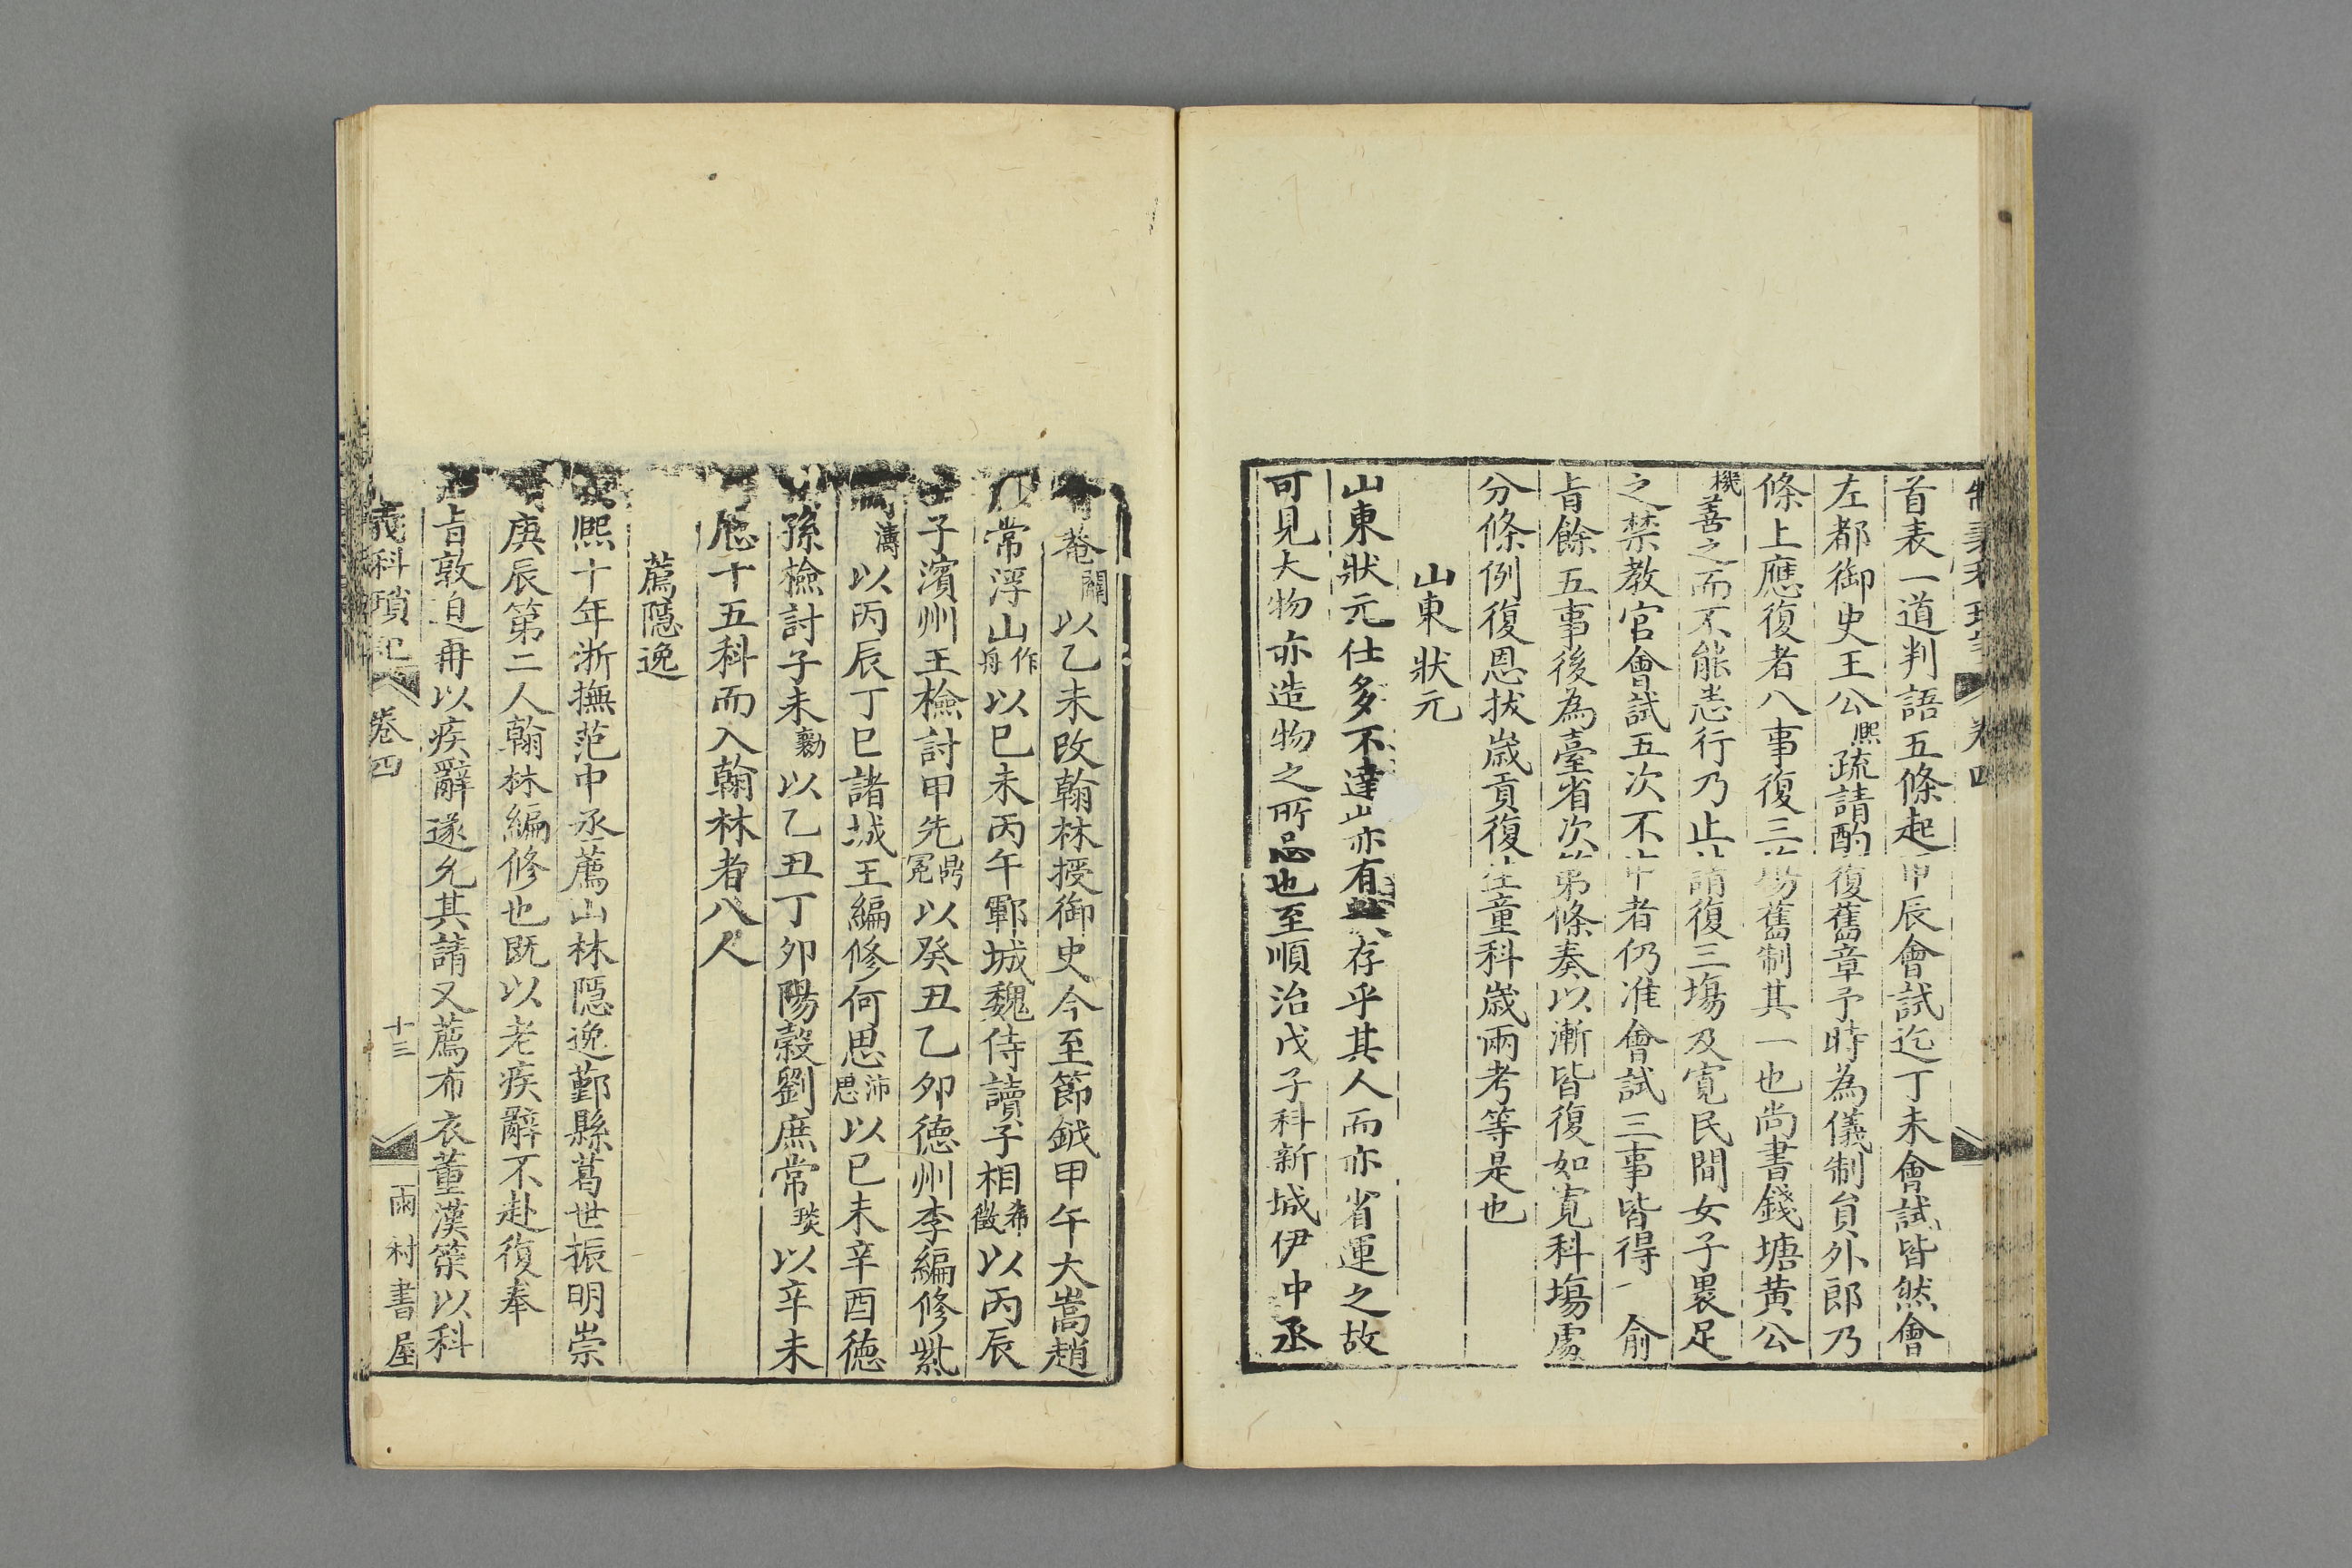 首表一道判語五條起甲辰會試迄丁未會試皆然會
左都御史王公熙疏請酌復舊章予時為儀制員外郎乃
條上應復者八事復三塲舊制其一也尚書錢塘黄公
機善之而不能悉行乃止請復三塲及寛民間女子裹足
之禁教官會試五次不中者仍准會試三事皆得俞
旨餘五事後為臺省次第條奏以漸皆復如寛科塲處
分條例復恩拔歲貢復生童科歲兩考等是也
山東狀元
山東狀元仕多不達亦有存乎其人而亦省運之故
可見大物亦造物之所忌也至順治戊子科新城伊中丞
菴闢以乙未改翰林授御史今至節鉞甲午大嵩趙
常浮山作舟以己未丙午鄆城魏侍讀子相希徵以丙辰
子濱州王檢討甲先鼎冕以癸丑乙夘德州李編修紫
濤以丙辰丁巳諸城王編修何思沛思以己未辛酉德
孫檢討子未勷以乙丑丁夘陽穀劉庶常琰以辛未
凡十五科而入翰林者八人
薦隱逸
熙十年浙撫范中丞薦山林隱逸鄞縣葛世振明崇
庚辰第二人翰林編修也既以老疾辭不赴復奉
旨敦迫再以疾辭遂允其請又薦布衣董漢策以科
義科瑣記 卷四 十三 雨村書屋